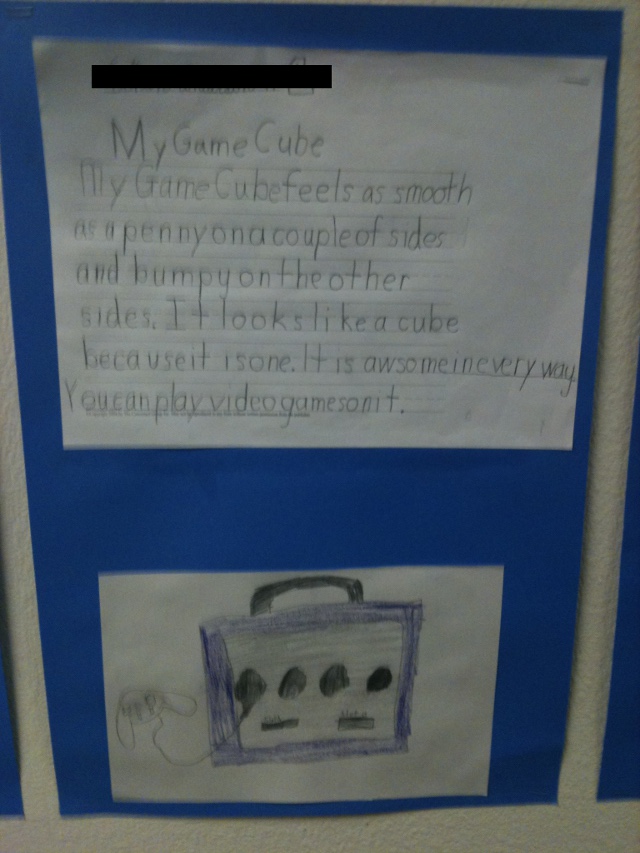 My Game Cube
My Game Cube feels as smooth
as a penny on a couple of sides
and bumpy on the other
sides. It looks like a cube
because it is one. It is awsome in every way.
You can play video games on it.